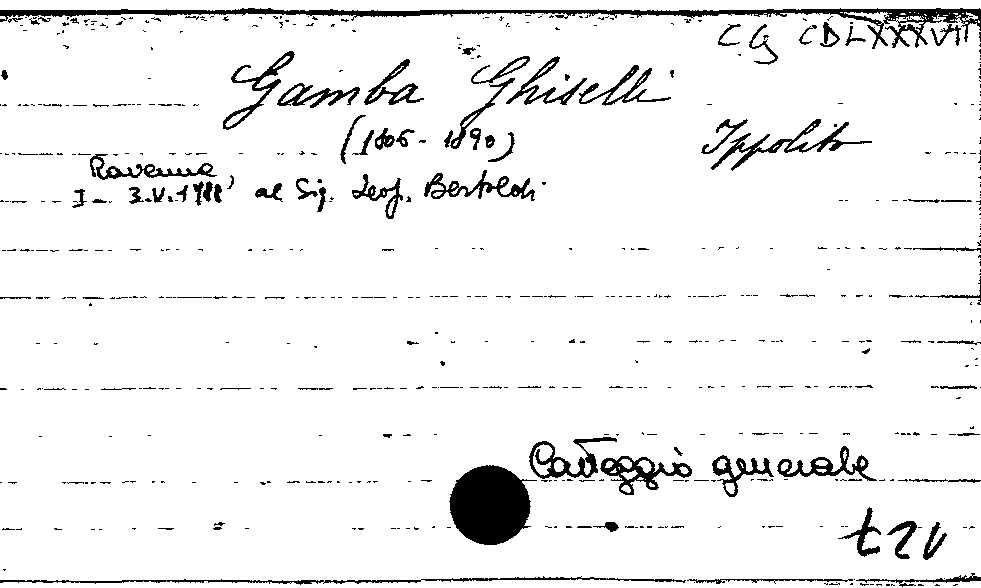 CG CDLXXXVII
Gamba Ghiselli
(1806-1890) Ippolito
Ravenna,
I - 3.V.1788 al Sig. Leop. Bertoldi
Carteggio generale